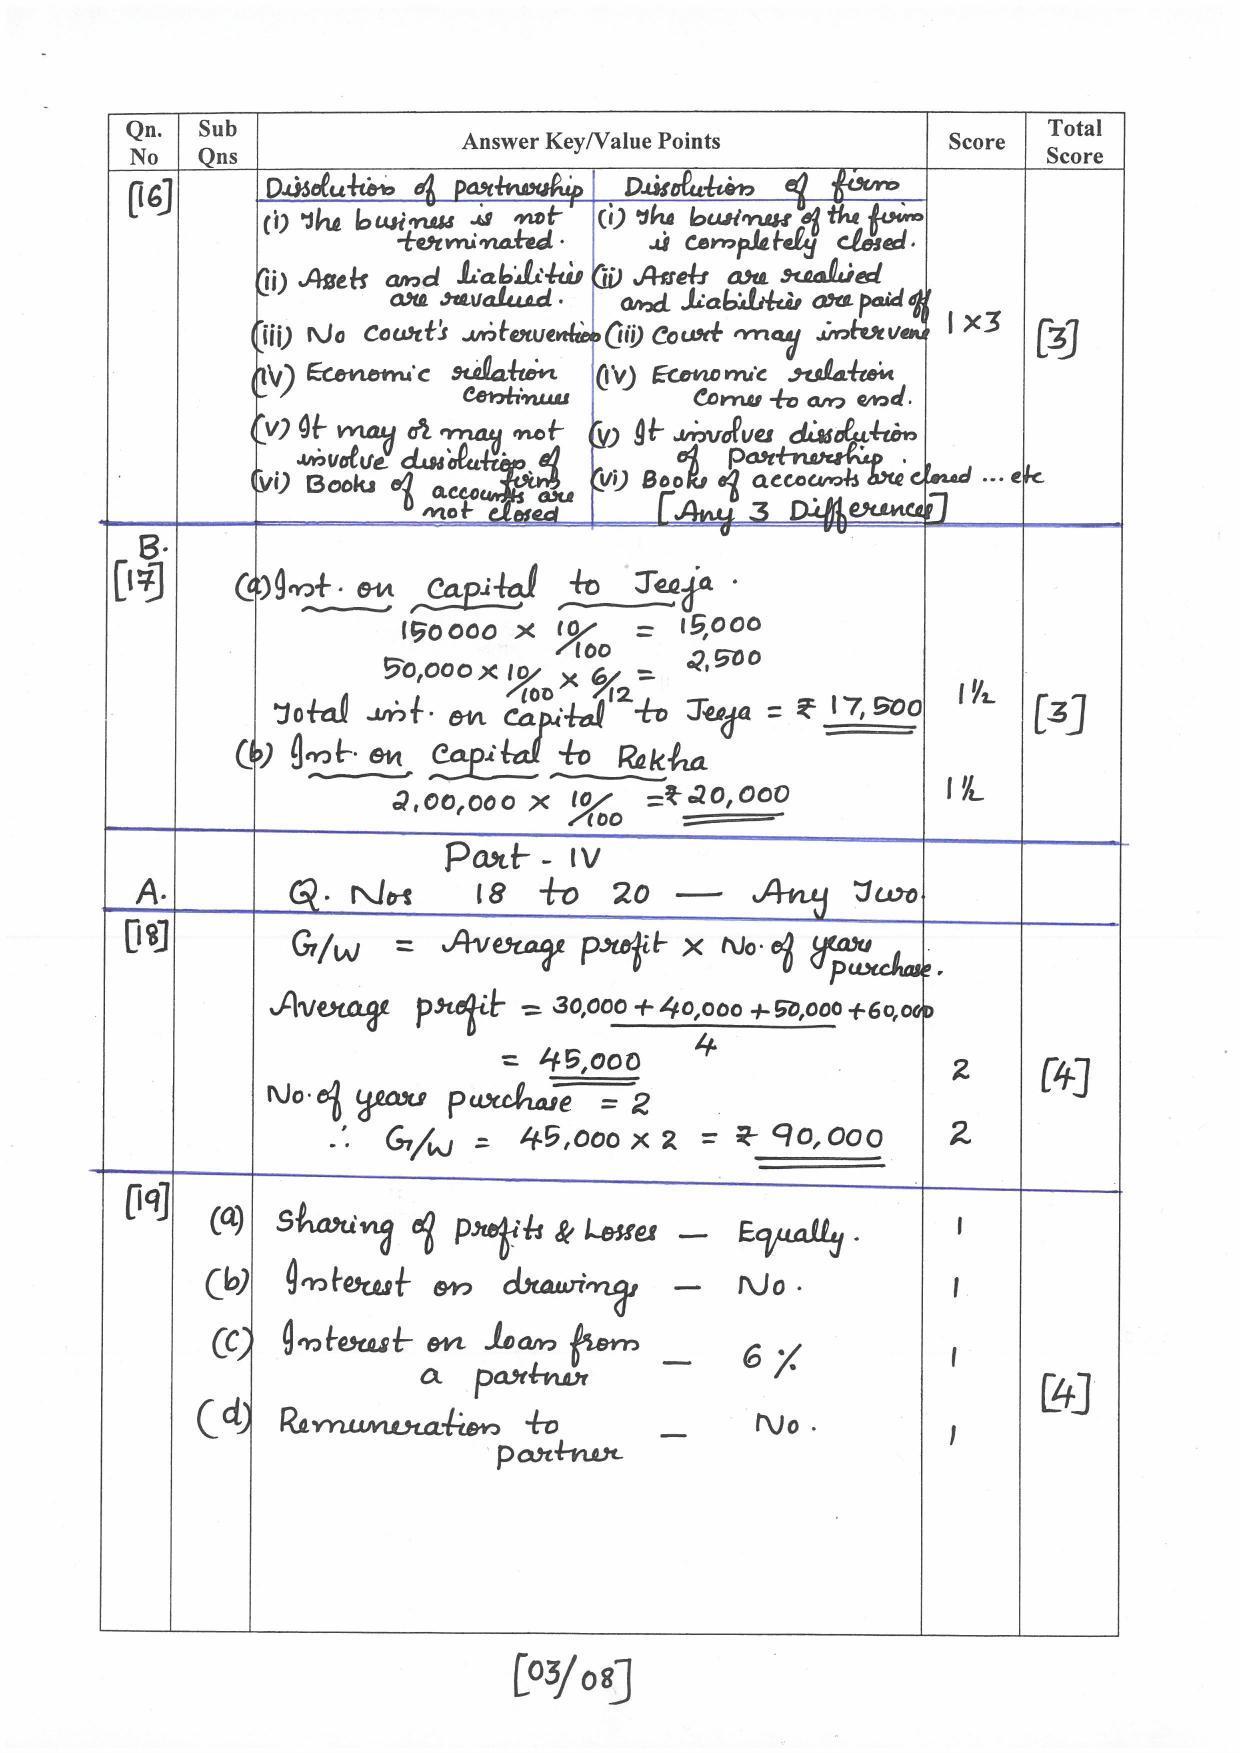 Qn. No Sub Qns Answer Key/Value Points Score Total Score
[16] Dissolution of partnership Dissolution of firm
(i) The business is not terminated. (i) The business of the firm is completely closed.
(ii) Assets and liabilities are revalued. (ii) Assets are realised and liabilities are paid off
(iii) No Court's intervention (iii) Court may intervene 1×3 [3]
(iv) Economic relation continues (iv) Economic relation comes to an end.
(v) It may or may not involve dissolution of firm (v) It involves dissolution of partnership.
(vi) Books of accounts are not closed (vi) Books of accounts are closed ... etc
[Any 3 Differences]
B.
[17] (a) Inst. on capital to Jeeja.
150000 × 10/100 = 15,000
50,000 × 10/100 × 6/12 = 2,500
Total int. on capital to Jeeja = ₹ 17,500 1½ [3]
(b) Inst. on capital to Rekha
2,00,000 × 10/100 = ₹ 20,000 1½
Part - IV
A. Q. Nos 18 to 20 — Any Two.
[18] G/W = Average profit × No. of years purchase.
Average profit = 30,000 + 40,000 + 50,000 + 60,000
4
= 45,000 2 [4]
No. of years purchase = 2
∴ G/W = 45,000 × 2 = ₹ 90,000 2
[19] (a) Sharing of profits & Losses — Equally. 1
(b) Interest on drawings — No. 1
(c) Interest on loan from a partner — 6% 1
[4]
(d) Remuneration to partner — No. 1
[03/08]